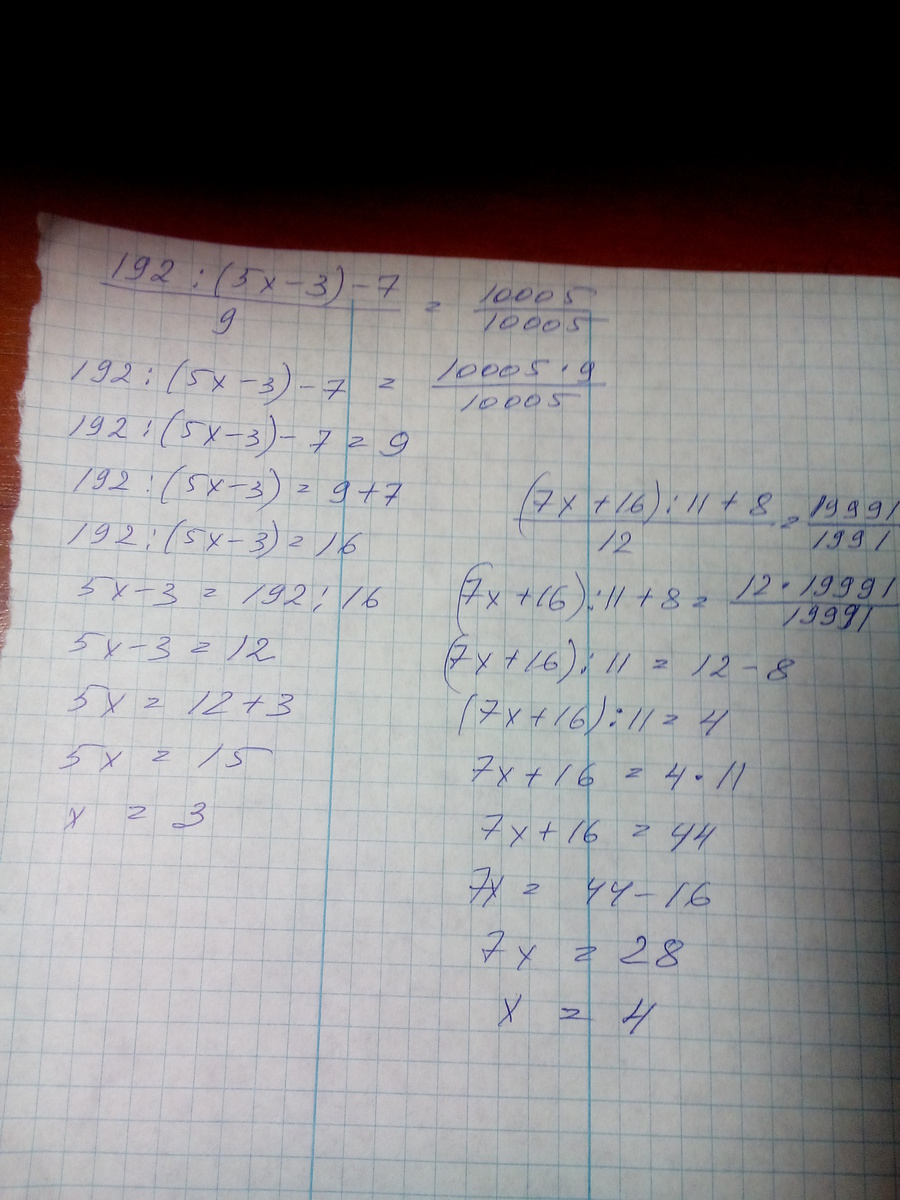 192 : (5x - 3) - 7 / 9 = 10005 / 10005
192 : (5x - 3) - 7 = 10005 · 9 / 10005
192 : (5x - 3) - 7 = 9
192 : (5x - 3) = 9 + 7
192 : (5x - 3) = 16
5x - 3 = 192 : 16
5x - 3 = 12
5x = 12 + 3
5x = 15
x = 3
(7x + 16) : 11 + 8 / 12 = 19991 / 1991
(7x + 16) : 11 + 8 = 12 · 19991 / 19991
(7x + 16) : 11 = 12 - 8
(7x + 16) : 11 = 4
7x + 16 = 4 · 11
7x + 16 = 44
7x = 44 - 16
7x = 28
x = 4